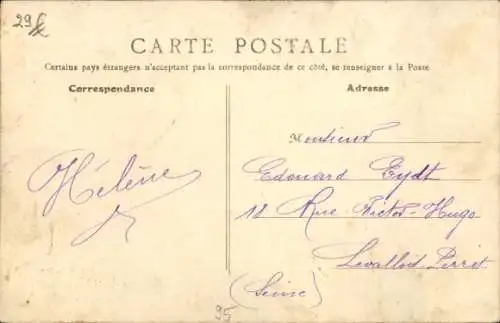 29
CARTE POSTALE
Certains pays étrangers n'acceptant pas la correspondance de ce côté, se renseigner à la Poste
Correspondance
Adresse
Monsieur
Edouard Eydt
18 Rue Victor-Hugo
Levallois Perret
(Seine)
Hélène
95